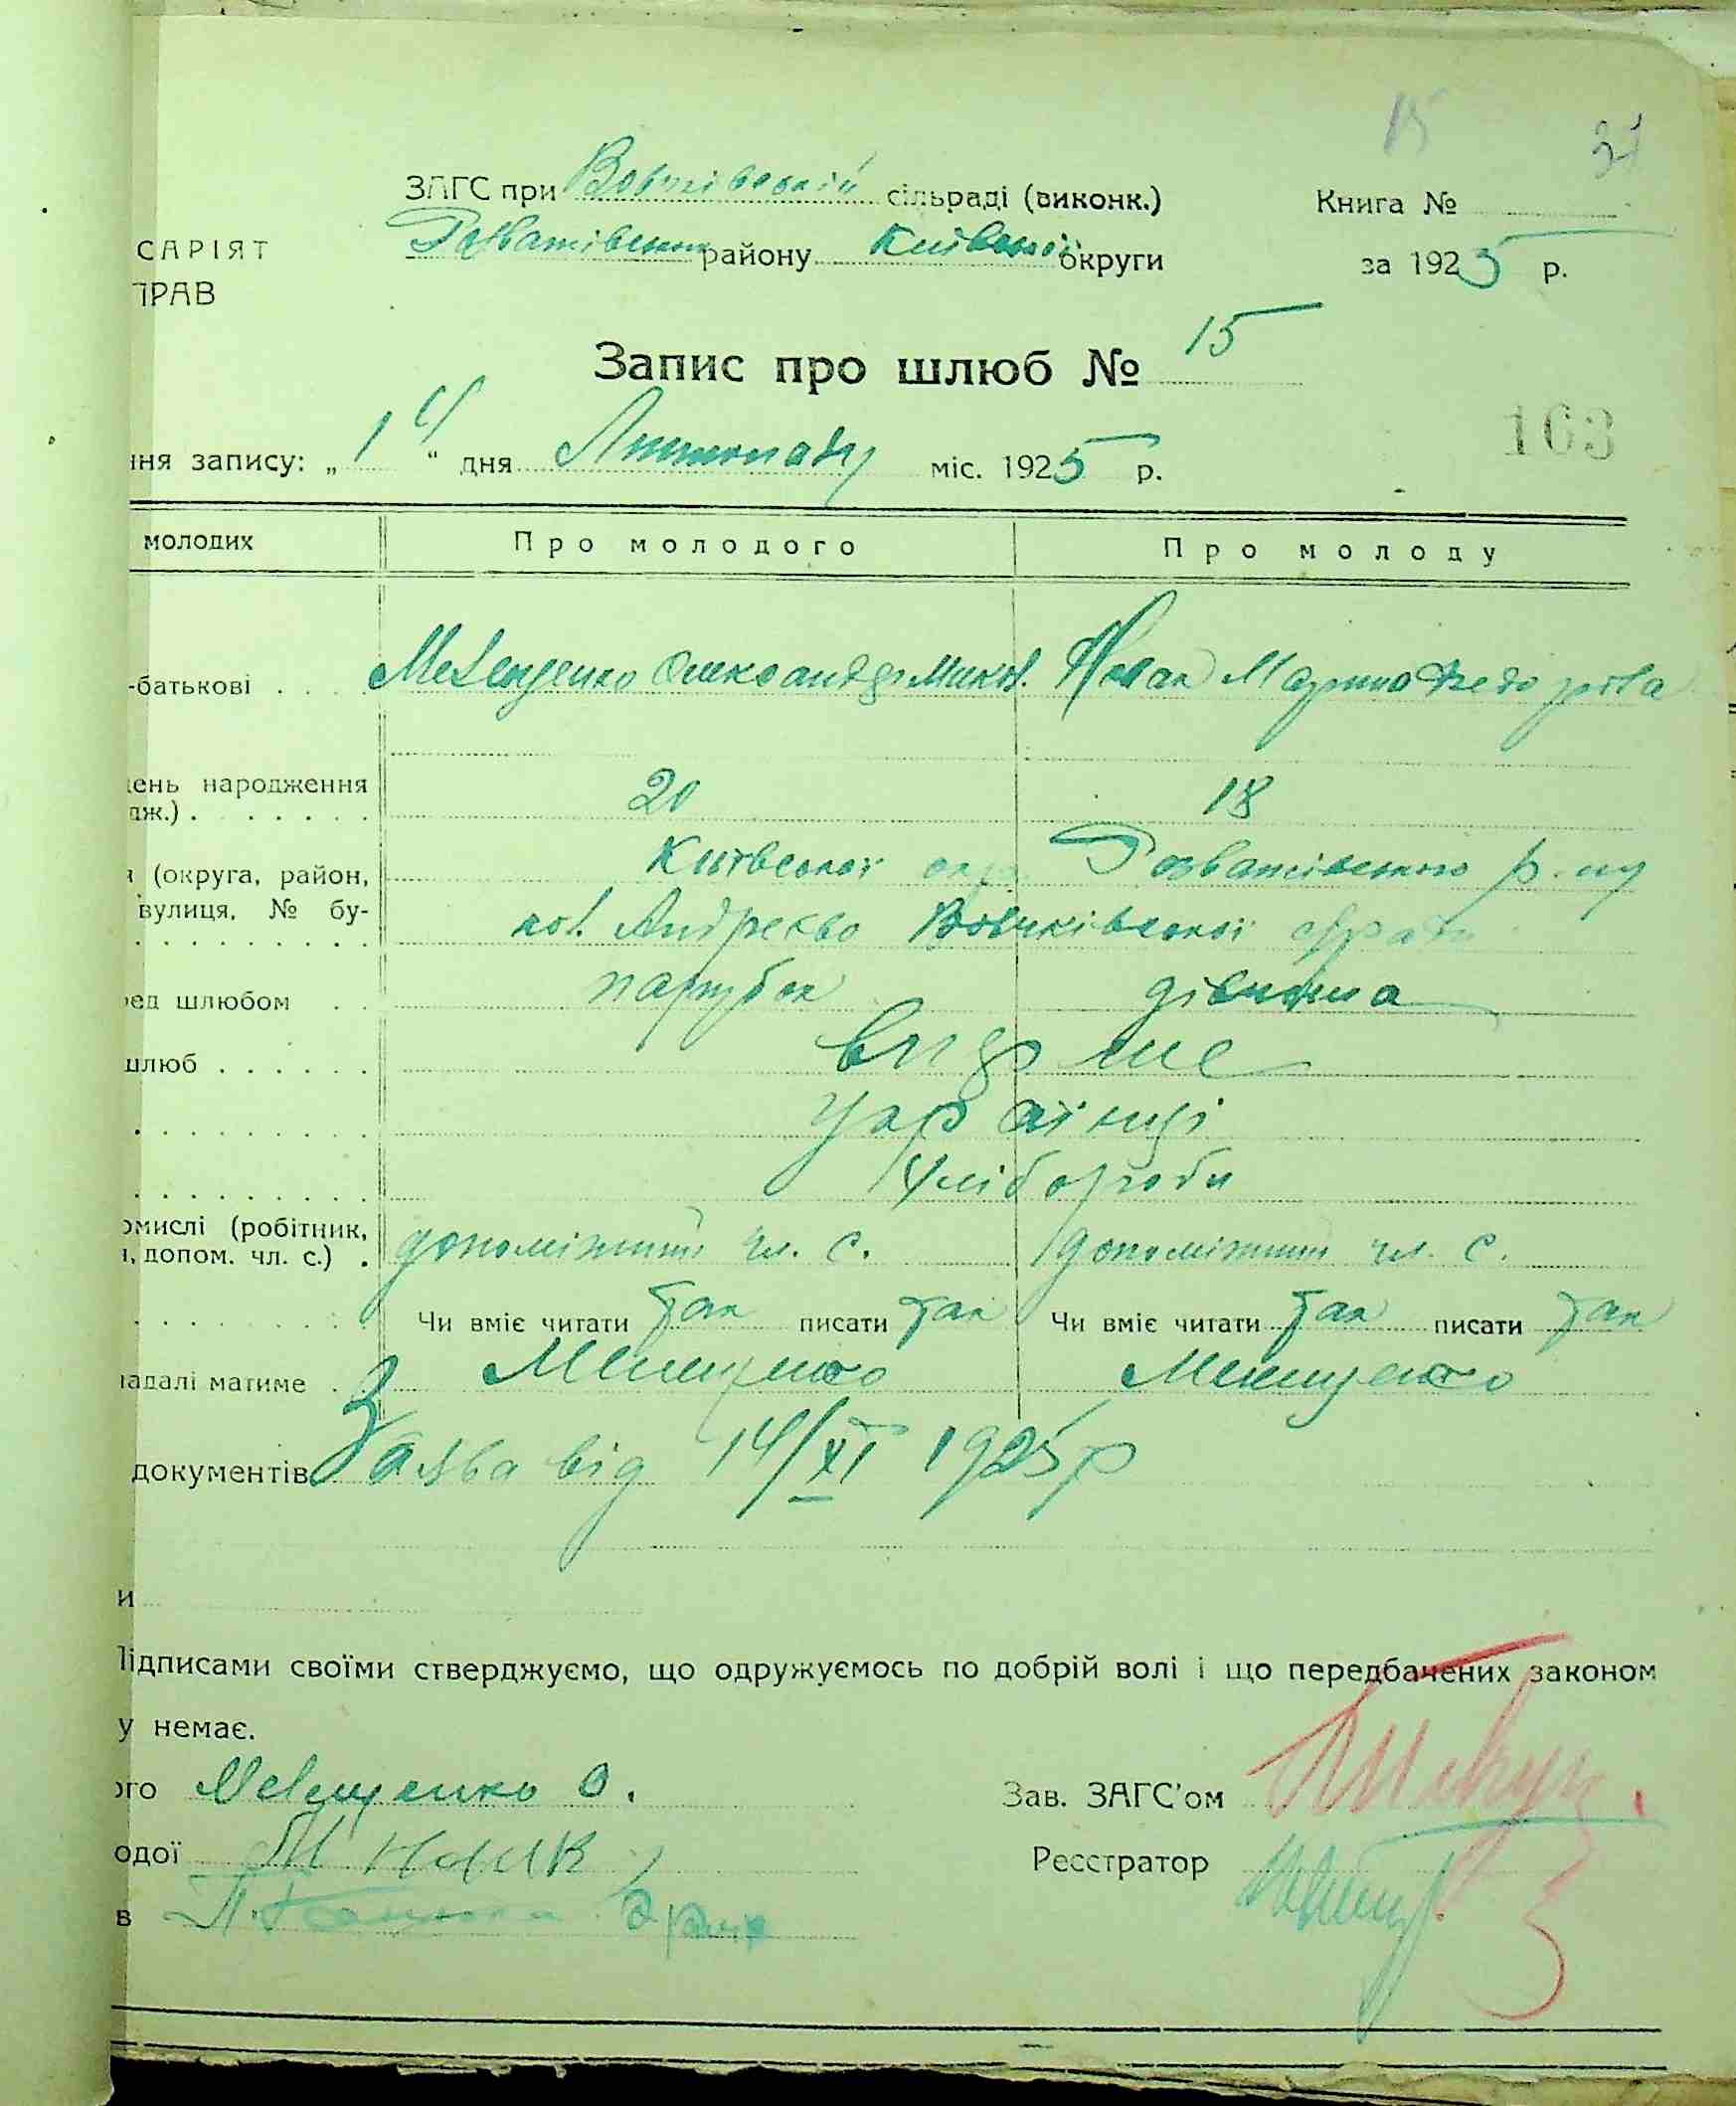 15
ЗАГС при Вовчківській сільраді (виконк.)
Книга №
САРІЯТ
Розватівськ району Київської округи
за 1925 р.
ПРАВ
Запис про шлюб № 15
163
ння запису: „14“ дня Листопаду міс. 1925 р.
молодих
Про молодого
Про молоду
-батькові . . . .
Мелещенко Олександр Микол. Новак Марина Федорівa
ень народження
аж.) . . . . . . .
20
18
(округа, район,
Київської окр Розватівського р-ну
вулиця, № бу-
кол. Андреєво Вовчківської
ред шлюбом . .
парубок
дівчина
шлюб . . . . . .
вперше
українці
Хлібороби
омислі (робітник,
, допом. чл. с.) .
допоміжний чл. с.
допоміжний чл. с.
Чи вміє читати так писати так
Чи вміє читати так писати так
надалі матиме .
Мелещенко
Мелещенко
документів Заява від 14/XI 1925 р
и
Підписами своїми стверджуємо, що одружуємось по добрій волі і що передбачених законом
у немає.
ого Мелещенко О.
Зав. ЗАГС'ом
одої М Новак
Реєстратор
в